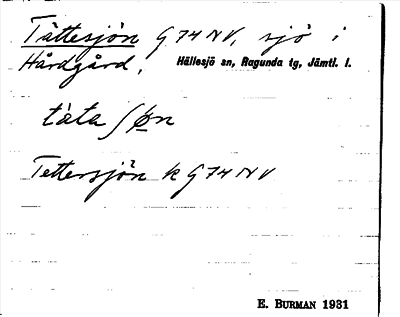 Tåttesjön G 74 NV, sjö i
Hårdgård, Hällesjö sn, Ragunda tg, Jämtl. l.
tåta ʃøn
Tettersjön k G 74 NV
E. BURMAN 1931